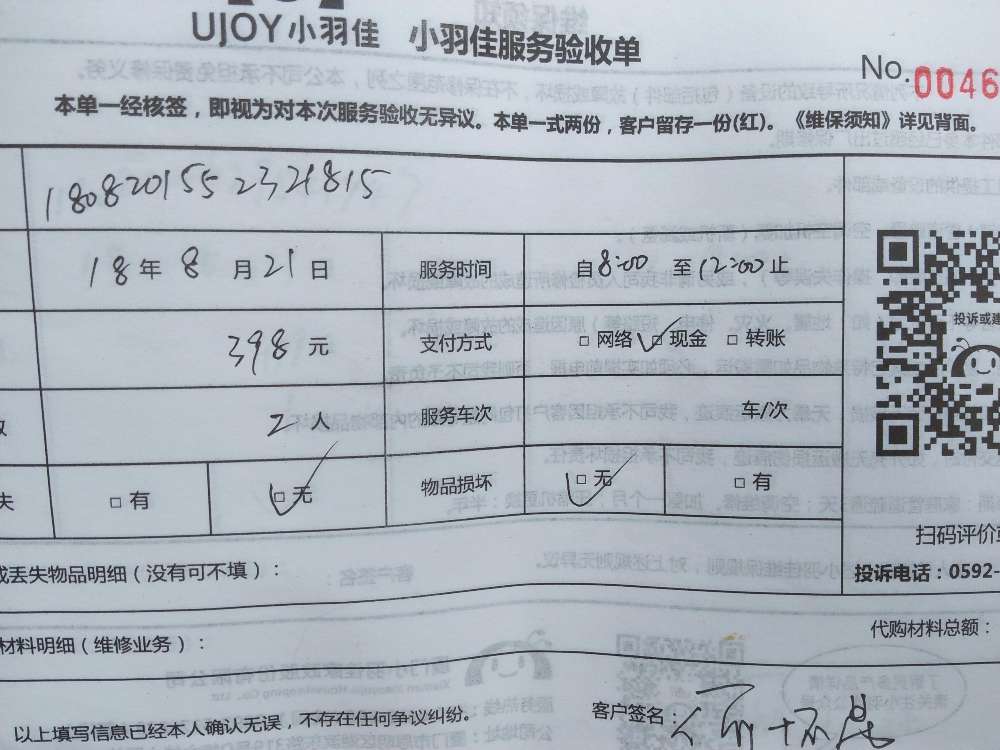 UJOY小羽佳 小羽佳服务验收单
No.0046
本单一经核签，即视为对本次服务验收无异议。本单一式两份，客户留存一份(红)。《维保须知》详见背面。
1808201552321815
18年8月21日 服务时间 自8:00至12:00止
398元 支付方式 □网络 □现金 □转账
2人 服务车次 车/次
失 □有 □无 物品损坏 □无 □有
投诉或建
扫码评价或
投诉电话：0592-
或丢失物品明细（没有可不填）：
材料明细（维修业务）：
代购材料总额：
以上填写信息已经本人确认无误，不存在任何争议纠纷。
客户签名：